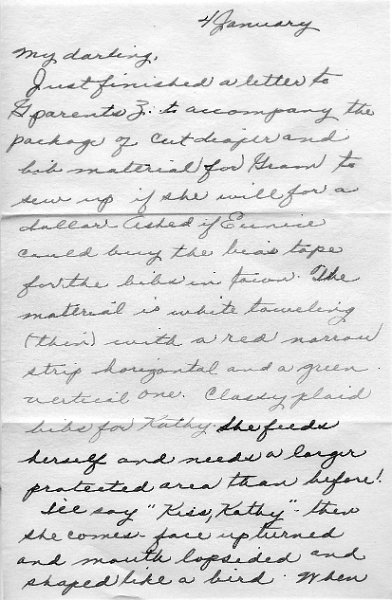 4 January
My darling,
Just finished a letter to
Gparents Z. to accompany the
package of cut diaper and
bib material for Gram to
sew up if she will for a
dollar. Asked if Eunice
could buy the bias tape
for the bibs in town. The
material is white toweling
(thin) with a red narrow
strip horizontal and a green
vertical one. Classy plaid
bibs for Kathy. She feeds
herself and needs a larger
protected area than before!
I'll say "Kiss, Kathy" - then
she comes - face upturned
and mouth lopsided and
shaped like a bird. When